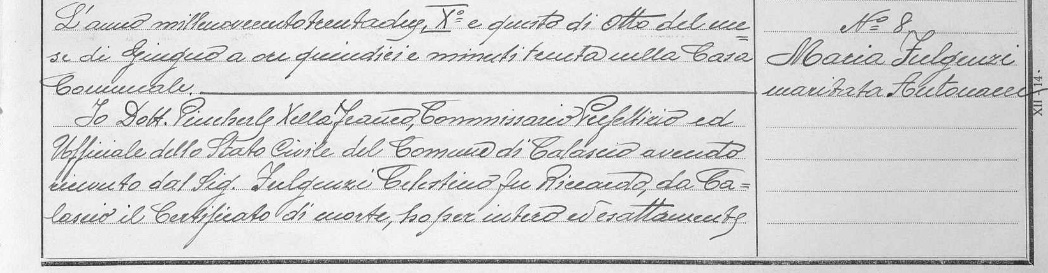 L'anno millenovecentotrentadue, X° e questo dì otto del me=
se di Giugno a ore quindici e minuti trenta nella Casa
Comunale.
Io Dott. Franco, Commissario Prefettizio ed
Ufficiale dello Stato Civile del Comune di Calascio avendo
ricevuto dal Sig. Fulgenzi Celestino fu Riccardo, da Ca=
lascio il Certificato di morte, ho per intero ed esattamente
N° 8
Maria Fulgenzi
maritata Antonacci
XII - 14.